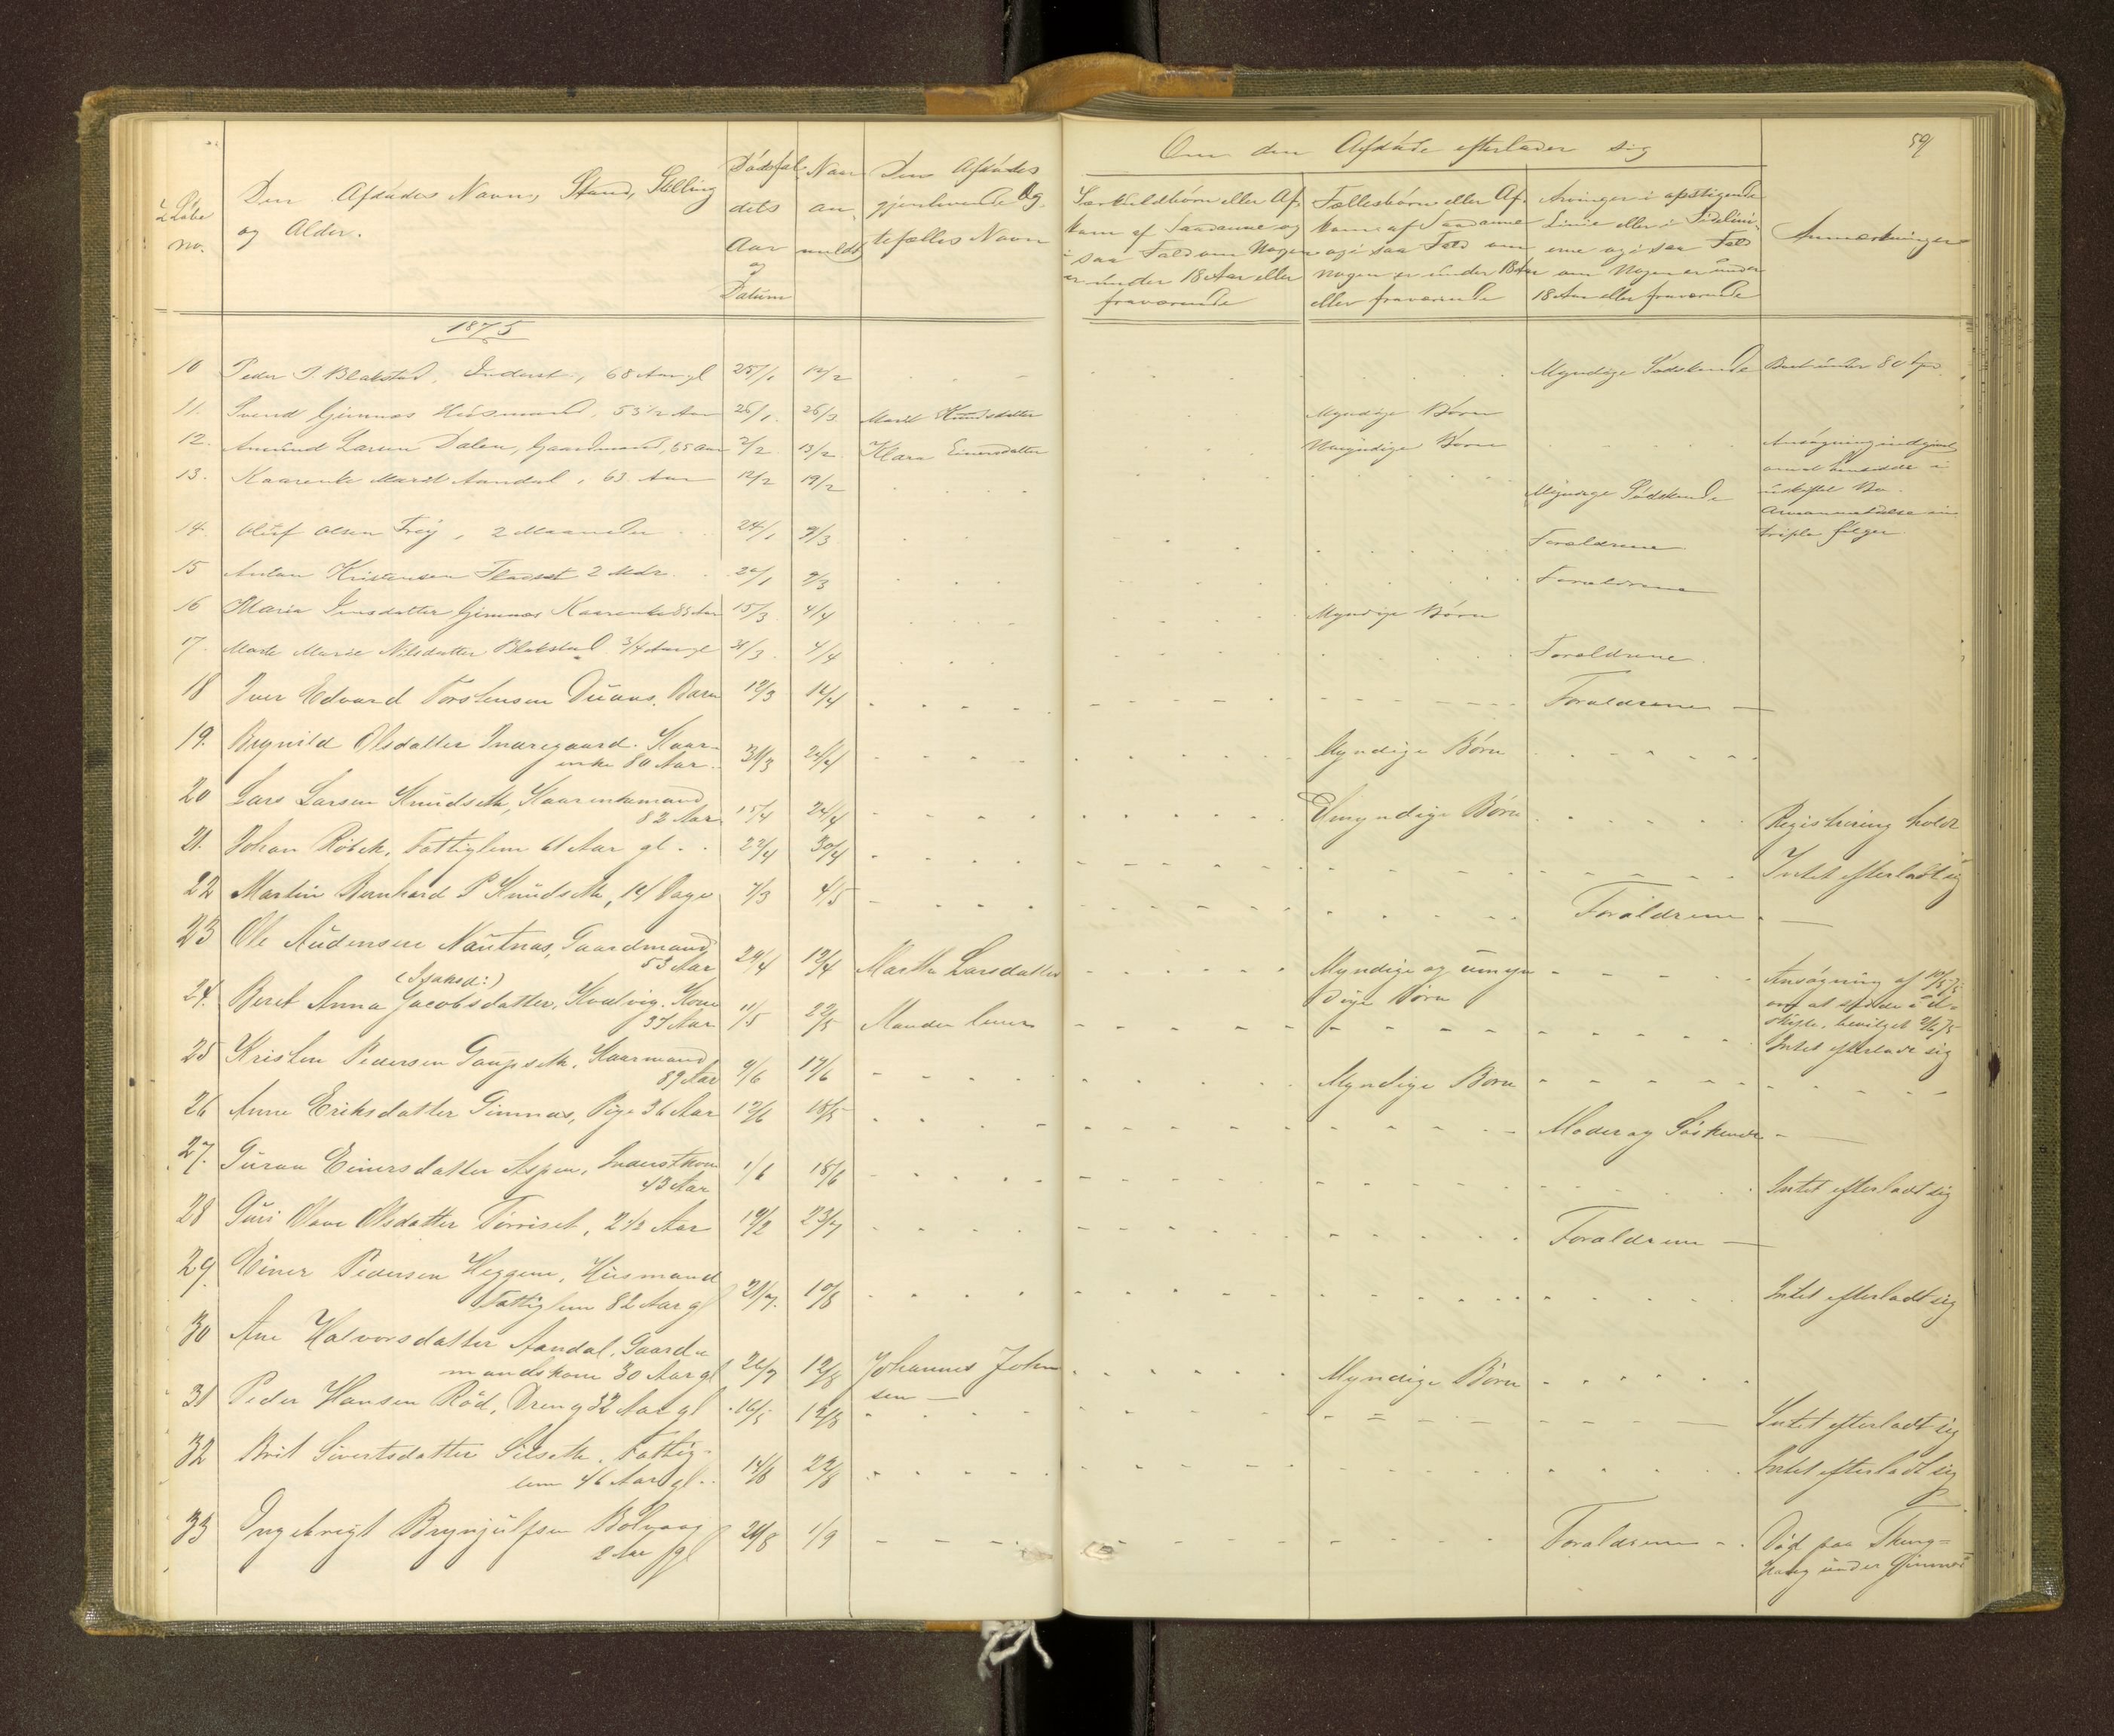 59
Om den Afdøde efterlader sig
Løbe no.
Den Afdødes Navn, Stand, Stilling og Alder.
Dødsfaldets Aar og Datum
Naar anmeldt
Den Afdødes gjenlevende Ægtefælles Navn
Særkuldbørn eller Afkom af Saadanne og i saa Fald om Nogen er under 18 Aar eller fraværende
Fællesbørn eller Afkom af Saadanne og i saa Fald om Nogen er under 18 Aar eller fraværende
Arvinger i opstigende Linie eller i Sidelinierne og i saa Fald om Nogen er under 18 Aar eller fraværende
Anmærkninger
1875
10 Peder J. Blakstad, Inderst, 68 Aar gl 25/1 12/2 Myndige Sødskende Boet under 80
11. Svend Gimnæs Husmand, 53 1/2 Aar 26/1 26/3 Marit Knudsdatter Myndige Børn
12. Amund Larsen Dalen, Gaardmand, 65 Aar 2/2 13/2 Klara Einersdatter Umyndige Børn Ansøgning indgivet om at hensidde i uskiftet Bo.
13. Kaarenke Marit Aandal, 63 Aar 12/2 19/2 Myndige Sødskende
14. Oluf Olsen Frey, 2 Maaneder 24/1 9/3 Forældrene
15 Anton Kristensen 2 Mdr. 20/1 9/3 Forældrene
16 Maria Jensdatter Gimnæs Kaarenke 83 Aar 15/3 4/4 Myndige Børn
17. Marte Marie Nilsdatter Blakstad 3/4 Aar gl 31/3 4/4 Forældrene
18 Iver Edvard Torstensen Duaas, Barn 12/3 14/4 Forældrene
19. Brynild Olsdatter Indregaard. Kaar-
enke 80 Aar. 31/3 24/4 Myndige Børn
20 Lars Larsen Knudseth, Kaarenkemand
82 Aar 15/4 24/4 Umyndige Børn Registrering holdt
21. Johan Röbek, Fattiglem 61 Aar gl. 22/4 30/4 Intet efterladt sig
22 Martin Bernhard P Knudseth, 14 Dage 7/3 4/5 Forældrene
23 Ole Audensen Nautnæs, Gaardmand
53 Aar 24/4 12/4 Marthe Larsdatter Myndige og umyn
dige Børn Ansøgning af 10/5 75
om at sidde i u-
skifte, bevilget 2/6 75
(Isaksd:)
24. Beret Anna Jacobsdatter, Kvalvig. Kone
37 Aar 11/5 22/5 Manden lever Intet efterladt sig
25 Kristen Pedersen Gaupseth, Kaarmand
89 Aar 9/6 17/6 Myndige Børn
26 Anne Eriksdatter Gimnæs, Pige 36 Aar 12/6 18/5 Moder og Søskende
27. Guran Einersdatter Aspen, Inderstkone
43 Aar 1/6 18/6 Intet efterladt sig
28 Guri Olava Olsdatter Torriset, 2 1/2 Aar 19/2 23/7 Forældrene
29. Einer Pedersen Heggem, Husmand
Fattiglem 82 Aar gl 21/7. 10/8 Intet efterladt sig
30 Ane Halvorsdatter Aandal, Gaard-
mandskone 30 Aar gl 26/7 12/8 Johannes John
sen Myndige Børn
31 Peder Hansen Röd, Dreng 32 Aar gl 16/5 12/8 Intet efterladt sig
32 Brit Sivertsdatter Silseth. Fattig-
lem 46 Aar gl. 14/8 22/8 Intet efterladt sig
33 Ingebrigt Brynjulfsen Bolvaag
2 Aar gl 24/8 1/9 Forældrene Död paa Thing-
Haug under Gimnæs